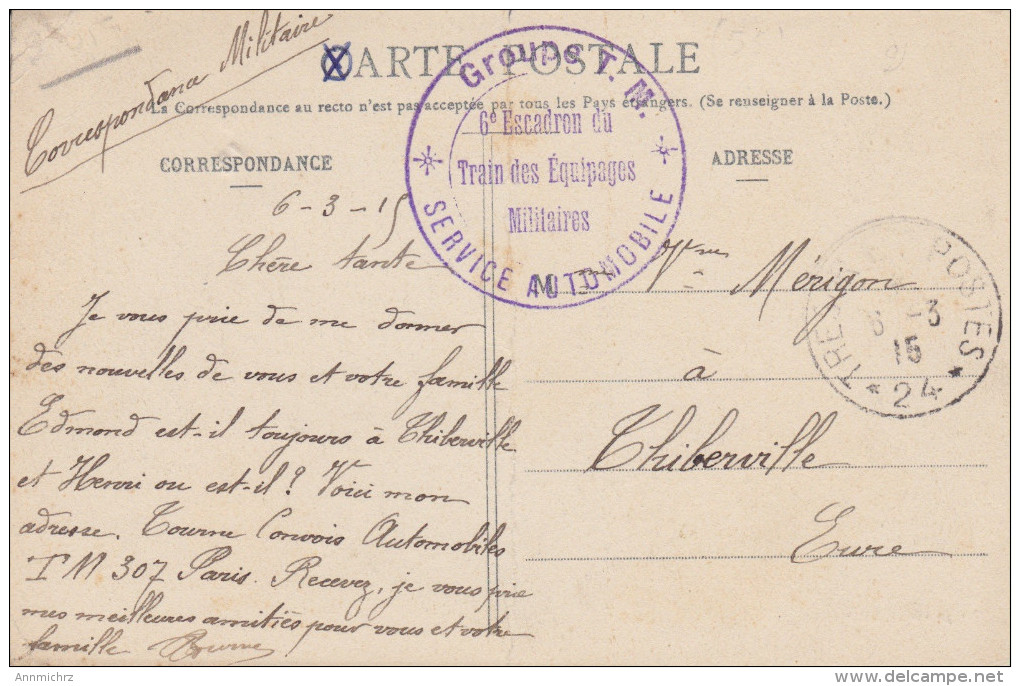 Correspondance Militaire
CARTE POSTALE
La Correspondance au recto n'est pas acceptée par tous les Pays étrangers. (Se renseigner à la Poste.)
CORRESPONDANCE
ADRESSE
Groupe T. M.
6e Escadron du
Train des Équipages
Militaires
SERVICE AUTOMOBILE
6 - 3 - 15
Chère tante
Je vous prie de me donner
des nouvelles de vous et votre famille
Edmond est-il toujours à Thiberville
et Henri ou est-il? Voici mon
adresse. Tourne Convois Automobiles
TM 307 Paris. Recevez, je vous prie
mes meilleures amitiés pour vous et votre
famille Tourne
M
Vve Mérigon
à
Thiberville
Eure
TRE POSTES
6 -3
15
* 24 *
Annmichrz
delcampe.net